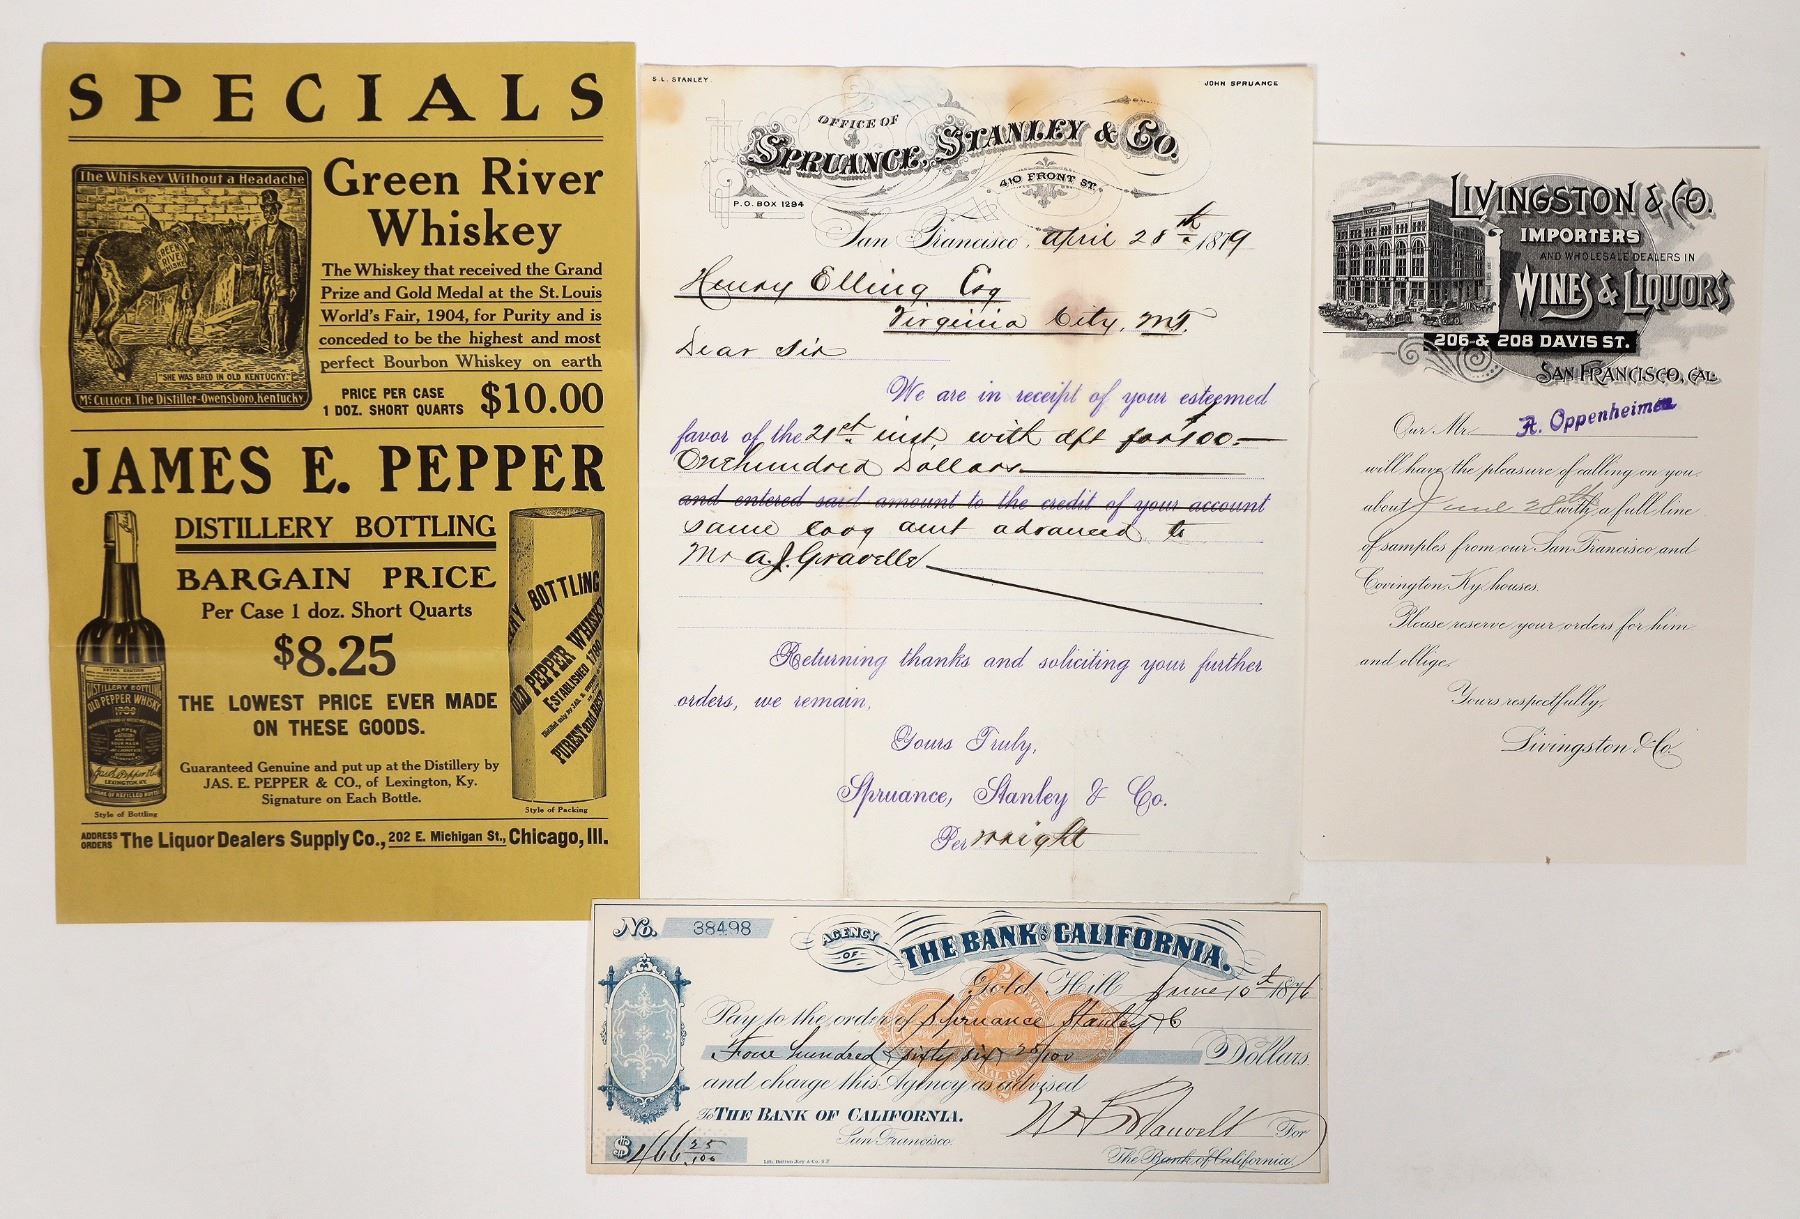 SPECIALS
The Whiskey Without a Headache
GREEN RIVER WHISKEY
"SHE WAS BRED IN OLD KENTUCKY."
McCulloch, The Distiller-Owensboro, Kentucky
Green River
Whiskey
The Whiskey that received the Grand
Prize and Gold Medal at the St. Louis
World's Fair, 1904, for Purity and is
conceded to be the highest and most
perfect Bourbon Whiskey on earth
PRICE PER CASE
1 DOZ. SHORT QUARTS $10.00
JAMES E. PEPPER
DISTILLERY BOTTLING
BARGAIN PRICE
Per Case 1 doz. Short Quarts
$8.25
THE LOWEST PRICE EVER MADE
ON THESE GOODS.
Guaranteed Genuine and put up at the Distillery by
JAS. E. PEPPER & CO., of Lexington, Ky.
Signature on Each Bottle.
DISTILLERY BOTTLING
OLD PEPPER WHISKY
1780
PEPPER
LEXINGTON, KY.
Style of Bottling
BOTTLING
OLD PEPPER WHISKY
ESTABLISHED 1780
PUREST and BEST
Style of Packing
ADDRESS ORDERS The Liquor Dealers Supply Co., 202 E. Michigan St., Chicago, Ill.
S.L. STANLEY.
JOHN SPRUANCE
OFFICE OF
SPRUANCE, STANLEY & CO.
410 FRONT ST.
P.O. BOX 1294
San Francisco, April 28th 1879
Henry Elling Esq
Virginia City, M.T.
Dear Sir
We are in receipt of your esteemed
favor of the 21st inst, with dft for $100=
One hundred Dollars
and entered said amount to the credit of your account
same amt advanced to
Mr A.J. Gravelle
Returning thanks and soliciting your further
orders, we remain,
Yours Truly,
Spruance, Stanley & Co.
Per Wright
LIVINGSTON & CO.
IMPORTERS
AND WHOLESALE DEALERS IN
WINES & LIQUORS
206 & 208 DAVIS ST.
SAN FRANCISCO, CAL.
Our Mr. A. Oppenheimer
will have the pleasure of calling on you
about June 28th with a full line
of samples from our San Francisco and
Covington, Ky. houses.
Please reserve your orders for him
and oblige,
Yours respectfully,
Livingston & Co.
No. 38498
AGENCY OF
THE BANK OF CALIFORNIA.
Gold Hill June 10th 1876
Pay to the order of Spruance Stanley & C
Four hundred & sixty six 25/100 Dollars.
and charge this Agency as advised
To THE BANK OF CALIFORNIA.
San Francisco.
For
The Bank of California.
$466 25/100